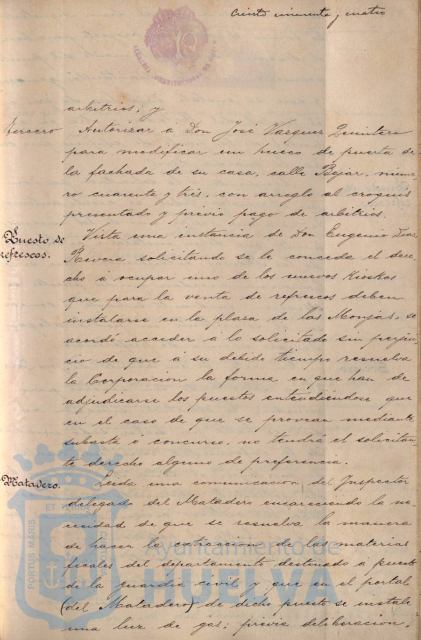 Ciento cincuenta y cuatro
arbitrios; y
Tercero Autorizar á Don José Vazquez Quintero
para modificar un hueco de puerta de
la fachada de su casa, calle Bejar, núme-
ro cuarenta y tres, con arreglo al croquis
presentado y previo pago de arbitrios.
Puesto de refrescos.
Vista una instancia de Don Eugenio
Rivera solicitando se le conceda el dere-
cho á ocupar uno de los nuevos Kioskos
que para la venta de refrescos deben
instalarse en la plaza de las Monjas, se
acordó acceder á lo solicitado sin perjui-
cio de que á su debido tiempo resuelva
la Corporacion la forma en que han de
adjudicarse los puestos entendiendose que
en el caso de que se provean mediante
subasta ó concurso, no tendrá el solicitan-
te derecho alguno de preferencia.
Matadero. Leida una comunicacion del Inspector
delegado del Matadero encareciendo la ne-
cesidad de que se resuelva la manera
de hacer la extraccion de las materias
fecales del departamento destinado a puesto
de la guardia civil y que en el portal
(del Matadero) de dicho puesto se instale
una luz de gas; previa deliberacion,
PORTUS MARIS
Ayuntamiento de
HUELVA